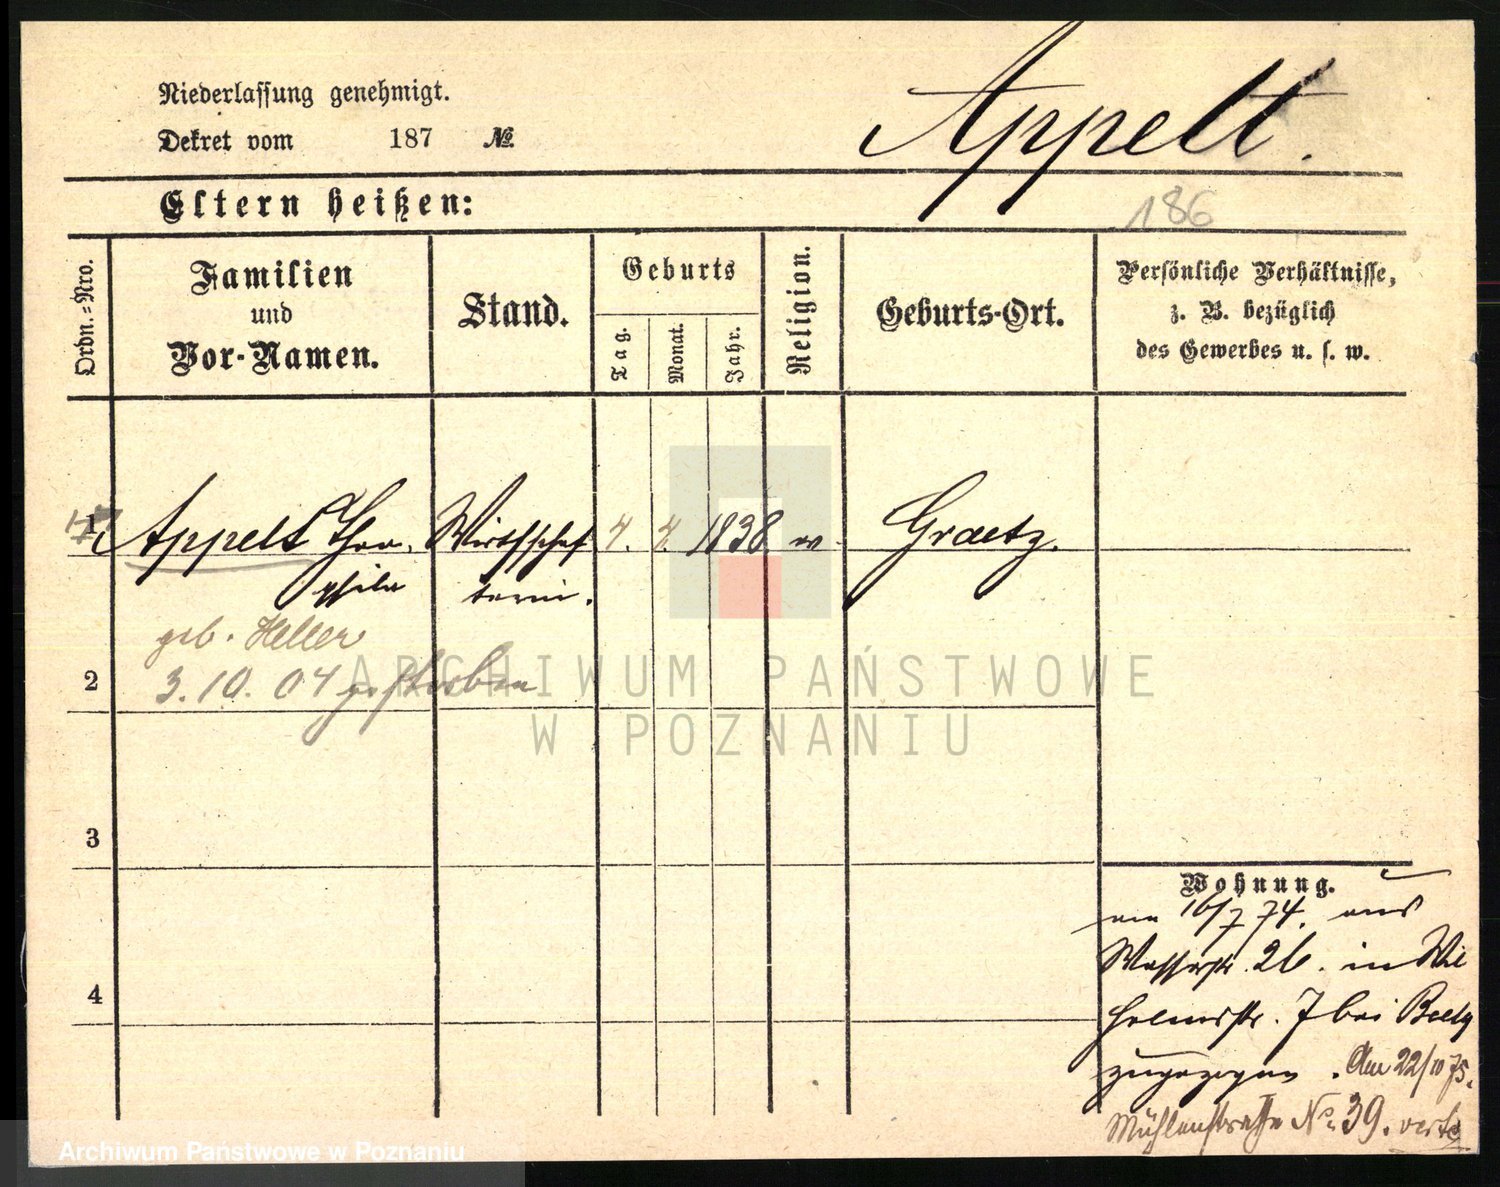 Niederlassung genehmigt.
Dekret vom 187 №.
Appelt.
Eltern heißen:
186
Ordn.=Nro.
Familien
und
Vor-Namen.
Stand.
Geburts
Tag.
Monat.
Jahr.
Religion.
Geburts-Ort.
Persönliche Verhältnisse,
z. B. bezüglich
des Gewerbes u. s. w.
1 Appelt Theo- Wirthschaf 4. 4. 1838 Graetz.
phila terin.
geb. Heller
2 3.10.04 gestorben
3
4
Wohnung.
am 16/7 74. aus
Wasserstr. 26. in Wil
helmstr. 7 bei Beely
zugezogen. Am 22/10 75.
Mühlenstraße No. 39. verte
ARCHIWUM PAŃSTWOWE
W POZNANIU
Archiwum Państwowe w Poznaniu